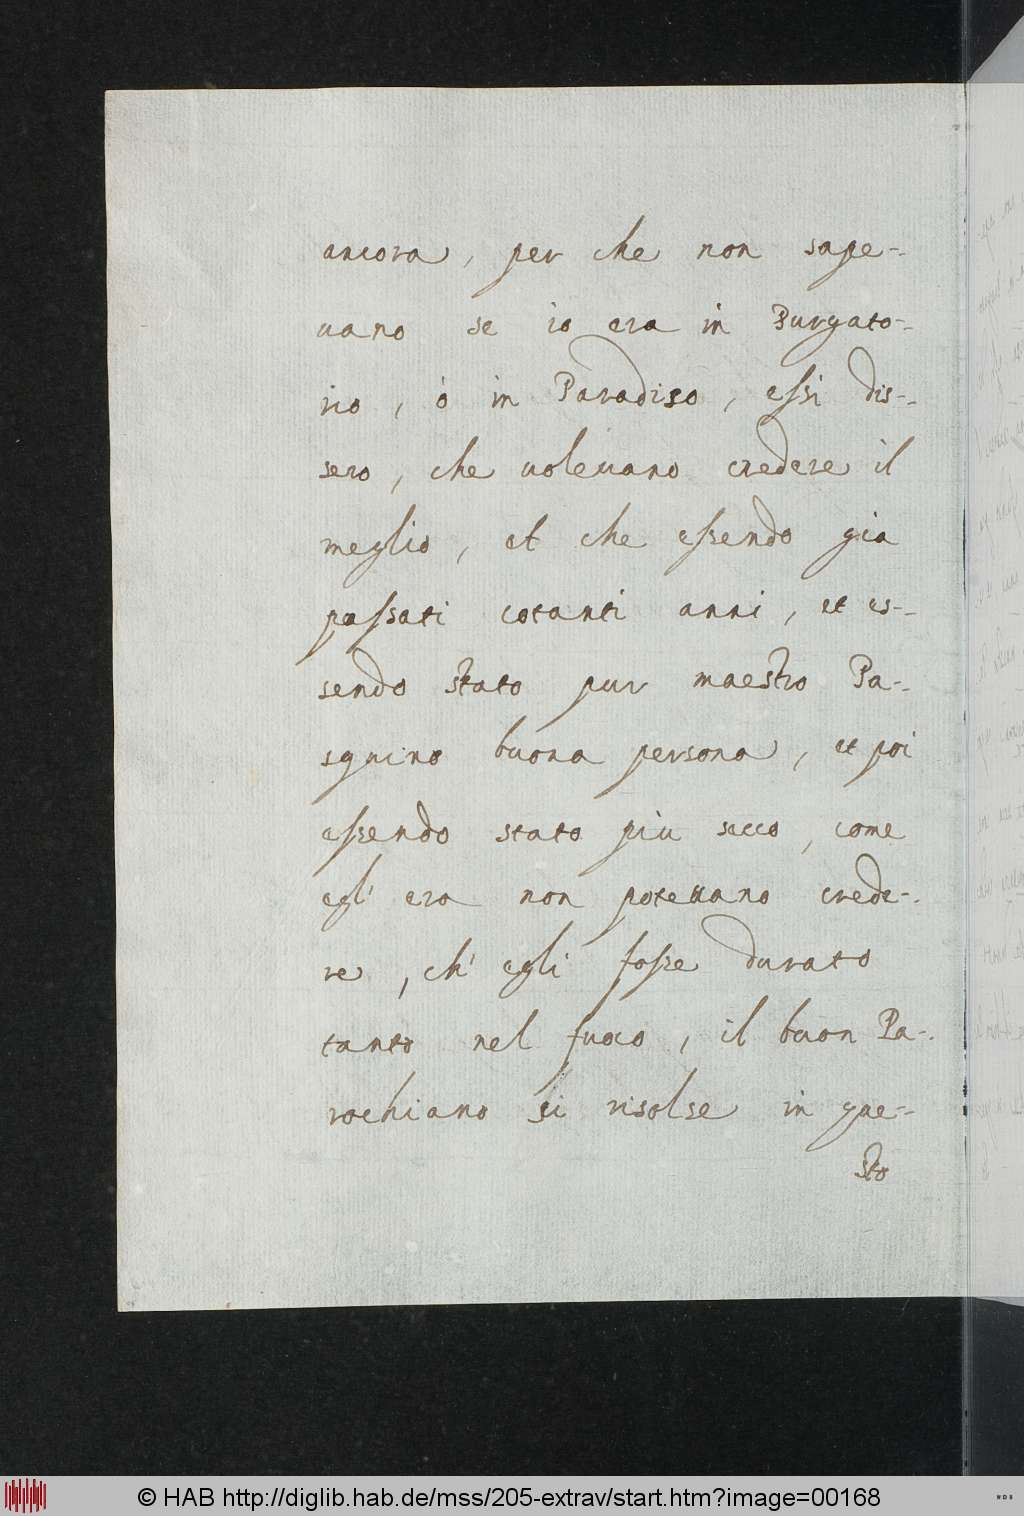 ancora, per che non sape-
uano se io era in Purgato-
rio, ò in Paradiso, essi dis-
sero, che uoleuano credere il
meglio, et che essendo gia
passati cotanti anni, et es-
sendo stato pur maestro Pa-
squino buona persona, et poi
essendo stato piu secco, come
egl' era non poteuano crede-
re, ch' egli fosse durato
tanto nel fuoco, il buon Pa-
rochiano si risolse in que-
sto
© HAB http://diglib.hab.de/mss/205-extrav/start.htm?image=00168